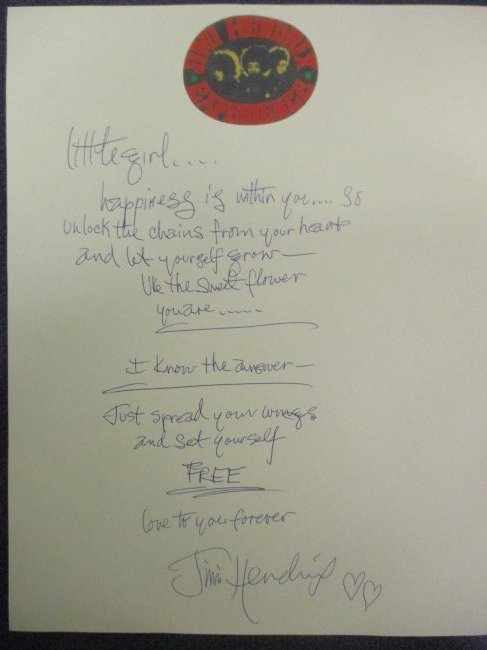 JIMI HENDRIX
EXPERIENCE
little girl.....
happiness is within you.... so
unlock the chains from your heart
and let yourself grow—
like the sweet flower
you are......
I know the answer—
Just spread your wings
and set yourself
FREE
love to you forever
Jimi Hendrix